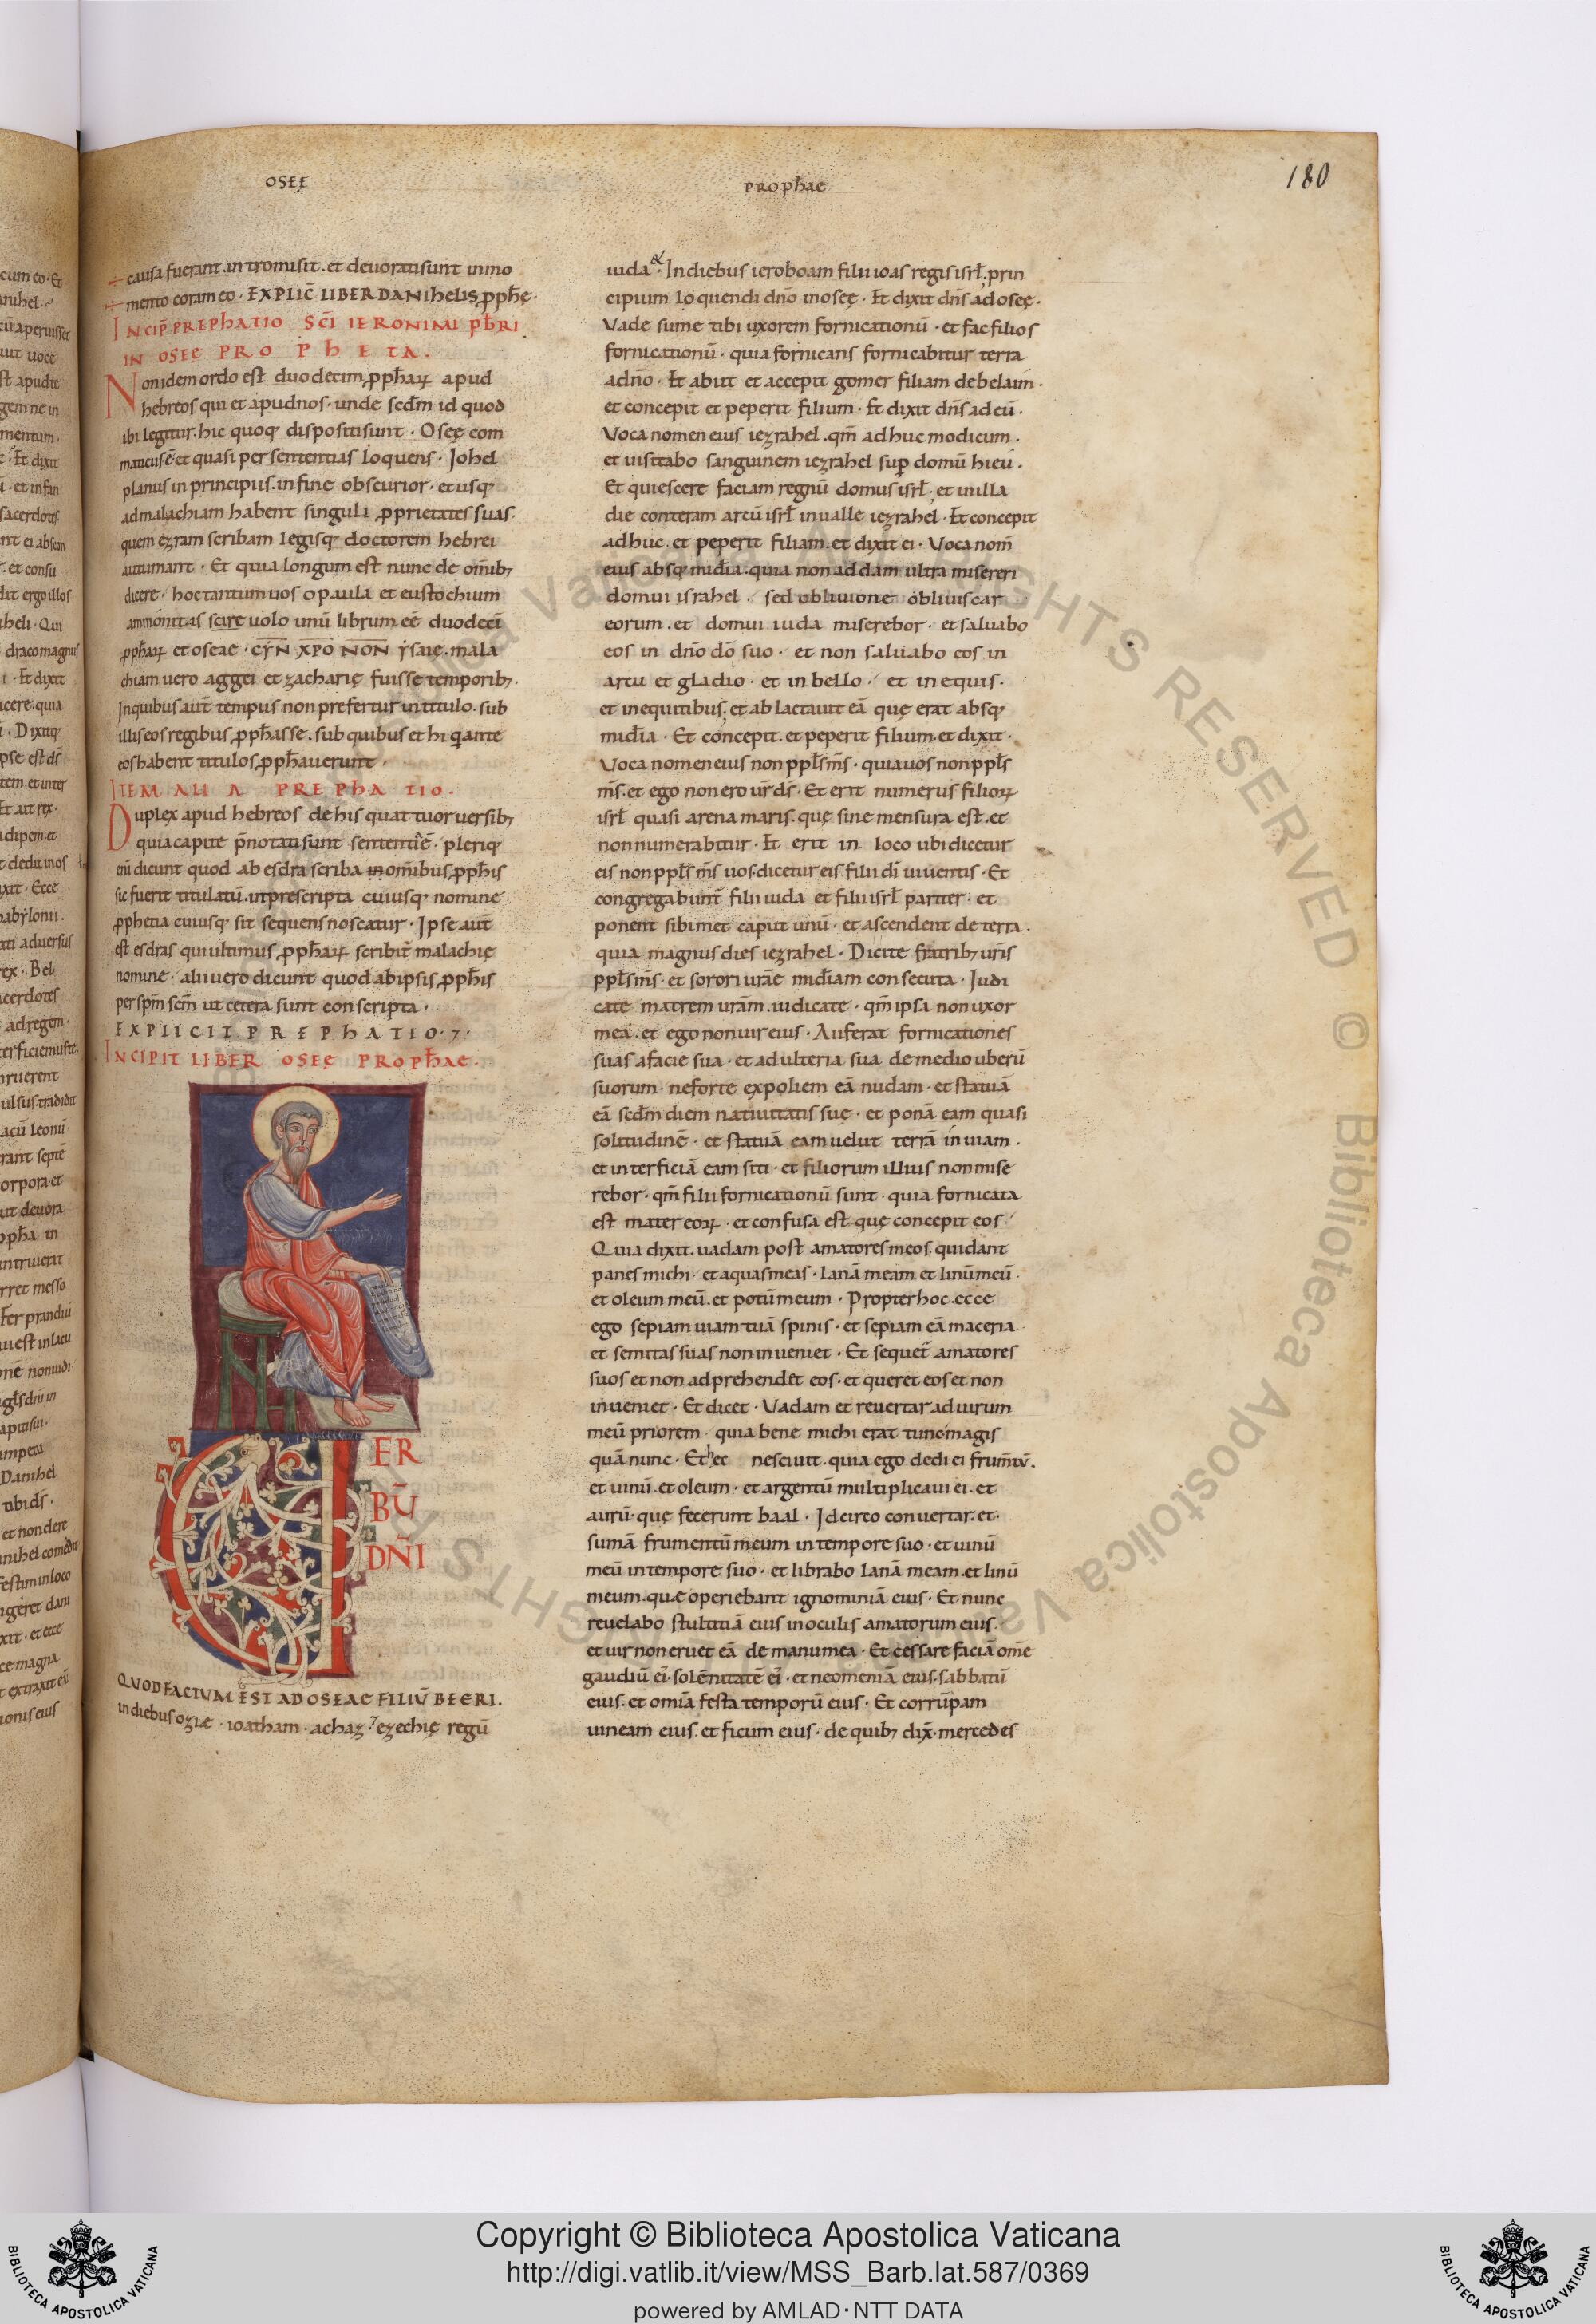 OSEĘ
PROPħAE
180
causa fuerant. intromisit. et devorati sunt in mo
mento coram eo. EXPLIC̄ LIBER DANIhELIS ꝓphę.
INCIP̄ PREPhATIO SC̄I IERONIMI PB̄RI
IN OSEĘ PROPhETA.
Non idem ordo est duodecim ꝓphaꝝ apud
hebreos qui et apud nos. unde scd̄m id quod
ibi legitur. hic quoq; dispositi sunt. Oseę com
maticus ē et quasi per sententias loquens. Johel
planus in principiis. in fine obscurior. et usq;
ad malachiam habent singuli ꝓprietates suas.
quem ezram scribam legisq; doctorem hebrei
autumant. Et quia longum est nunc de om̄ib;
dicere. hoc tantum uos o paula et eustochium
ammonitas scire uolo unū librum eē duodecī
ꝓphaꝝ et oseae. CY̅N̅ X̅P̅O̅ N̅O̅N̅ ẏsaię. mala
chiam uero aggei et zacharię fuisse temporib;.
Inquibus aut̄ tempus non prefertur in titulo. sub
illis eos regibus ꝓphasse. sub quibus et hi qui ante
eos habent titulos ꝓphauerunt.
ITEM ALIA PREPhATIO.
Duplex apud hebreos de his quattuor uersib;
quia capite p̄notati sunt sententię ē. pleriq;
eni dicunt quod ab esdra scriba in om̄ibus ꝓphis
sic fuerit titulatū. ut prescripta cuiusq; nomine
ꝓphetia cuiusq; sit sequens noscatur. Ipse aut̄
est esdras qui ultimus ꝓphaꝝ scribit̄ malachię
nomine. alii uero dicunt quod ab ipsis ꝓphis
per sp̄m sc̄m ut cetera sunt conscripta.
EXPLICIT PREPhATIO. 7.
INCIPIT LIBER OSEĘ PROPħAE.
VER
BŪ
DN̄I
QUOD FACTUM EST AD OSEAE FILIŪ BEERI.
in diebus ozię. ioatham. achaz 7 ezechię regū
iuda. & In diebus ieroboam filii ioas regis isrl̄. prin
cipium loquendi dn̄o in oseę. Et dixit dn̄s ad oseę.
Vade sume tibi uxorem fornicationū. et fac filios
fornicationū. quia fornicans fornicabitur terra
a dn̄o. Et abiit et accepit gomer filiam debelaim.
et concepit et peperit filium. Et dixit dn̄s ad eū.
Voca nomen eius iezrahel. qm̄ adhuc modicum.
et uisitabo sanguinem iezrahel sup̄ domū hieu.
Et quiescere faciam regnū domus isrl̄. et in illa
die conteram arcū isrl̄ in ualle iezrahel. Et concepit
adhuc. et peperit filiam. et dixit ei. Voca nom̄
eius absq; mid̄ia. quia non addam ultra misereri
domui israhel. sed obliuione obliuiscar
eorum. et domui iuda miserebor. et saluabo
eos in dn̄o dō suo. et non saluabo eos in
arcu et gladio. et in bello. et in equis.
et in equitibus. et ablactauit eā quę erat absq;
mid̄ia. Et concepit. et peperit filium. et dixit.
Voca nomen eius non ppl̄s m̄s. quia uos non ppl̄s
m̄s. et ego non ero ur̄ ds̄. Et erit numerus filioꝝ
isrl̄ quasi arena maris. quę sine mensura est. et
non numerabitur. Et erit in loco ubi dicetur
eis non ppl̄s m̄s uos. dicetur eis filii di̅ uiuentis. Et
congregabunt̄ filii iuda et filii isrl̄ pariter. et
ponent sibimet caput unū. et ascendent de terra.
quia magnus dies iezrahel. Dicite fratrib; ur̄is
ppl̄s m̄s. et sorori urāe mid̄iam consecuta. Iudi
cate matrem urām. iudicate. qm̄ ipsa non uxor
mea. et ego non uir eius. Auferat fornicationes
suas a facie sua. et adulteria sua de medio uberū
suorum. ne forte expoliem eā nudam. et statuā
eā scd̄m diem natiuitatis suę. et ponā eam quasi
solitudinē. et statuā eam uelut terrā in uiam.
et interficiā eam siti. et filiorum illius non mise
rebor. qm̄ filii fornicationū sunt. quia fornicata
est mater eoꝝ. et confusa est quę concepit eos.
Quia dixit. uadam post amatores meos. qui dant
panes michi. et aquas meas. lanā meam et linū meū.
et oleum meū. et potū meum. Propter hoc. ecce
ego sepiam uiam tuā spinis. et sepiam eā maceria.
et semitas suas non inueniet. Et sequet̄ amatores
suos et non adprehendet eos. et queret eos et non
inueniet. Et dicet. Vadam et reuertar ad uirum
meū priorem. quia bene michi erat tunc magis
quā nunc. Et hec nesciuit. quia ego dedi ei frum̄tū.
et uinū. et oleum. et argentū multiplicaui ei. et
aurū. quę fecerunt baal. Idcirco conuertar. et.
sumā frumentū meum in tempore suo. et uinū
meū in tempore suo. et librabo lanā meam. et linū
meum. quę operiebant ignominiā eius. Et nunc
reuelabo stultitiā eius in oculis amatorum eius.
et uir non eruet eā de manu mea. Et cessare faciā om̄e
gaudiū ei. solēnitatē ei. et neomeniā eius. sabbatū
eius. et omīa festa temporū eius. Et corrūpam
uineam eius. et ficum eius. de quib; dix̄. mercedes
Copyright © Biblioteca Apostolica Vaticana
http://digi.vatlib.it/view/MSS_Barb.lat.587/0369
powered by AMLAD·NTT DATA
BIBLIOTECA APOSTOLICA VATICANA
BIBLIOTECA APOSTOLICA VATICANA